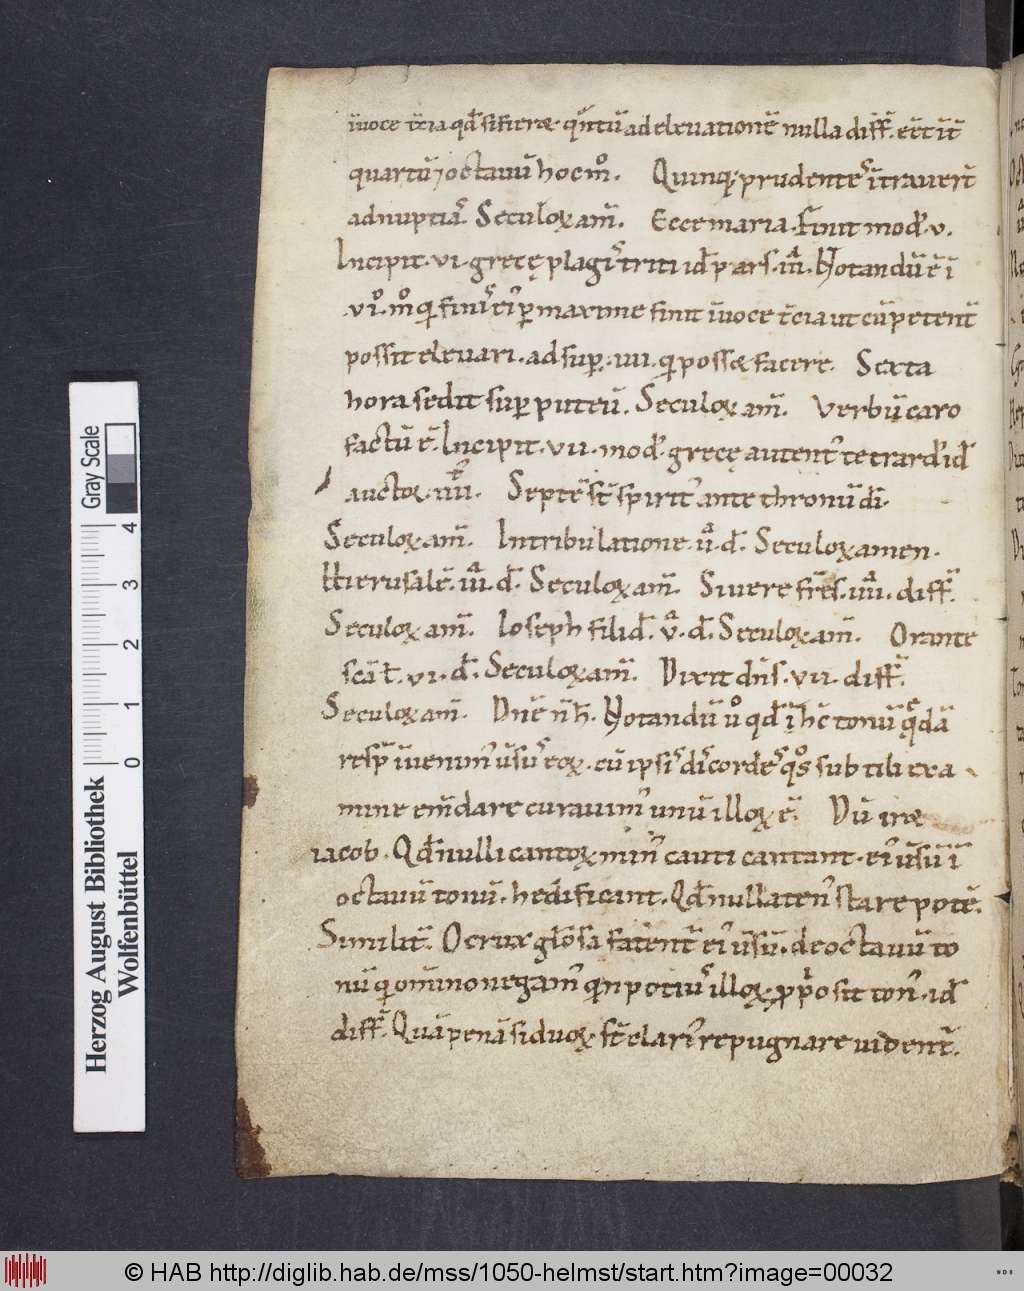 īuoce t̄cia qd̄ si fuerae· qn̄tū ad eleuationē nulla diff̄. eēt īt̄
quartū ⁊ octauū hoc m̊. Quinq; prudentes ītrauer̄t
ad nuptias Seculoꝝ am̄. Ecce maria. Finit mod᾽. v.
Incipit. vi. grecę plagis triti id̄ pars. iii. Notandū ē ī
.vi. m̊ qi finis ei᾽ ꝑ maxime finit ī uoce t̄cia ut cū petent̄
possit eleuari. ad suꝑ. iiii. qi possæ facere. Sexta
hora sedit suꝑ puteū. Seculoꝝ am̄. Verbū caro
factū ē. Incipit. vii. mod᾽. grecę autent᾽ tetrard᾽ id̄
auctoꝝ. iiii. Septē st̄ spirit᾽ ante thronū dī.
Seculoꝝ am̄. In tribulatione. ii. d̄. Seculoꝝ amen.
Hierusalē. iii. d̄. Seculoꝝ am̄. Si uere fr̄es. iiii. diff̄.
Seculoꝝ am̄. Ioseph fili d̄. v. d̄. Seculoꝝ am̄. Orante
scā t̄. vi. d̄. Seculoꝝ am̄. Dixit dn̄s. vii. diff̄.
Seculoꝝ am̄. Dn̄e n̄ h̄. Notandū ů qd̄ ī hc̄ tonū q̄dā
resp̄ iuenim᾽ ūsus eoꝝ. cū ipsis discordes qs̊ subtili exa
mine em̄dare curauim᾽ unū illoꝝ ē. Dū iræ
iacob. Qd̄ nulli cantoꝝ min᾽ cauti cantant. ei᾽ ūsū ī
octauū tonū. hedificant. Qd̄ nullaten᾽ stare potē.
Similit̄. O crux gl̄osa fatent̄ ei᾽ ūsū. de octauū to
nū qi omīno negam᾽ qin potius illoꝝ ꝓp̄osit ton᾽. id̄
diff̄. Quā penā si duoꝝ st̄ elari᾽ repugnare uident̄.
Gray Scale
0 1 2 3 4
Herzog August Bibliothek
Wolfenbüttel
© HAB http://diglib.hab.de/mss/1050-helmst/start.htm?image=00032